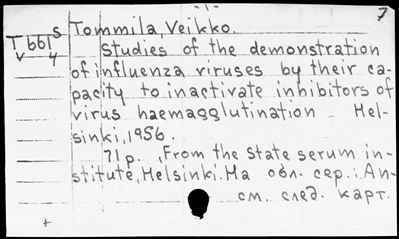 -1-
7
Tommila, Veikko.
T661s
v 4
Studies of the demonstration
of influenza viruses by their ca-
pacity to inactivate inhibitors of
virus haemagglutination Hel-
sinki, 1956.
71 p. , From the State serum in-
stitute, Helsinki. На обл. сер.: An-
см. след. карт.